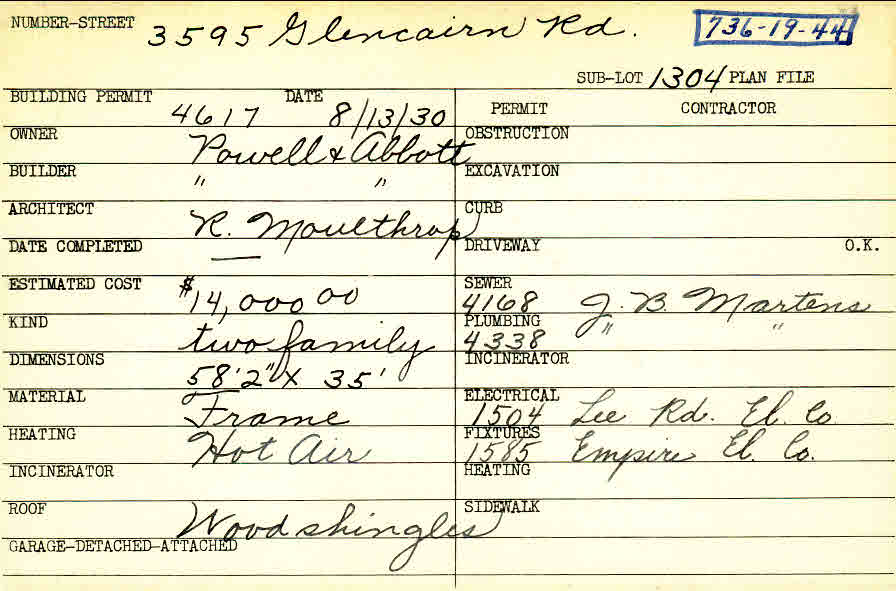 NUMBER-STREET 3595 Glencairn Rd. 736-19-44
SUB-LOT 1304 PLAN FILE
BUILDING PERMIT 4617 DATE 8/13/30
OWNER Powell & Abbott
BUILDER " "
ARCHITECT R. Moulthrop
DATE COMPLETED —
ESTIMATED COST $14,000 00
KIND two family
DIMENSIONS 58'2" X 35'
MATERIAL Frame
HEATING Hot Air
INCINERATOR
ROOF Wood shingles
GARAGE-DETACHED-ATTACHED
PERMIT CONTRACTOR
OBSTRUCTION
EXCAVATION
CURB
DRIVEWAY O.K.
SEWER 4168 J. B. Martens
PLUMBING 4338 " "
INCINERATOR
ELECTRICAL 1504 Lee Rd. El. Co.
FIXTURES 1585 Empire El. Co.
HEATING
SIDEWALK